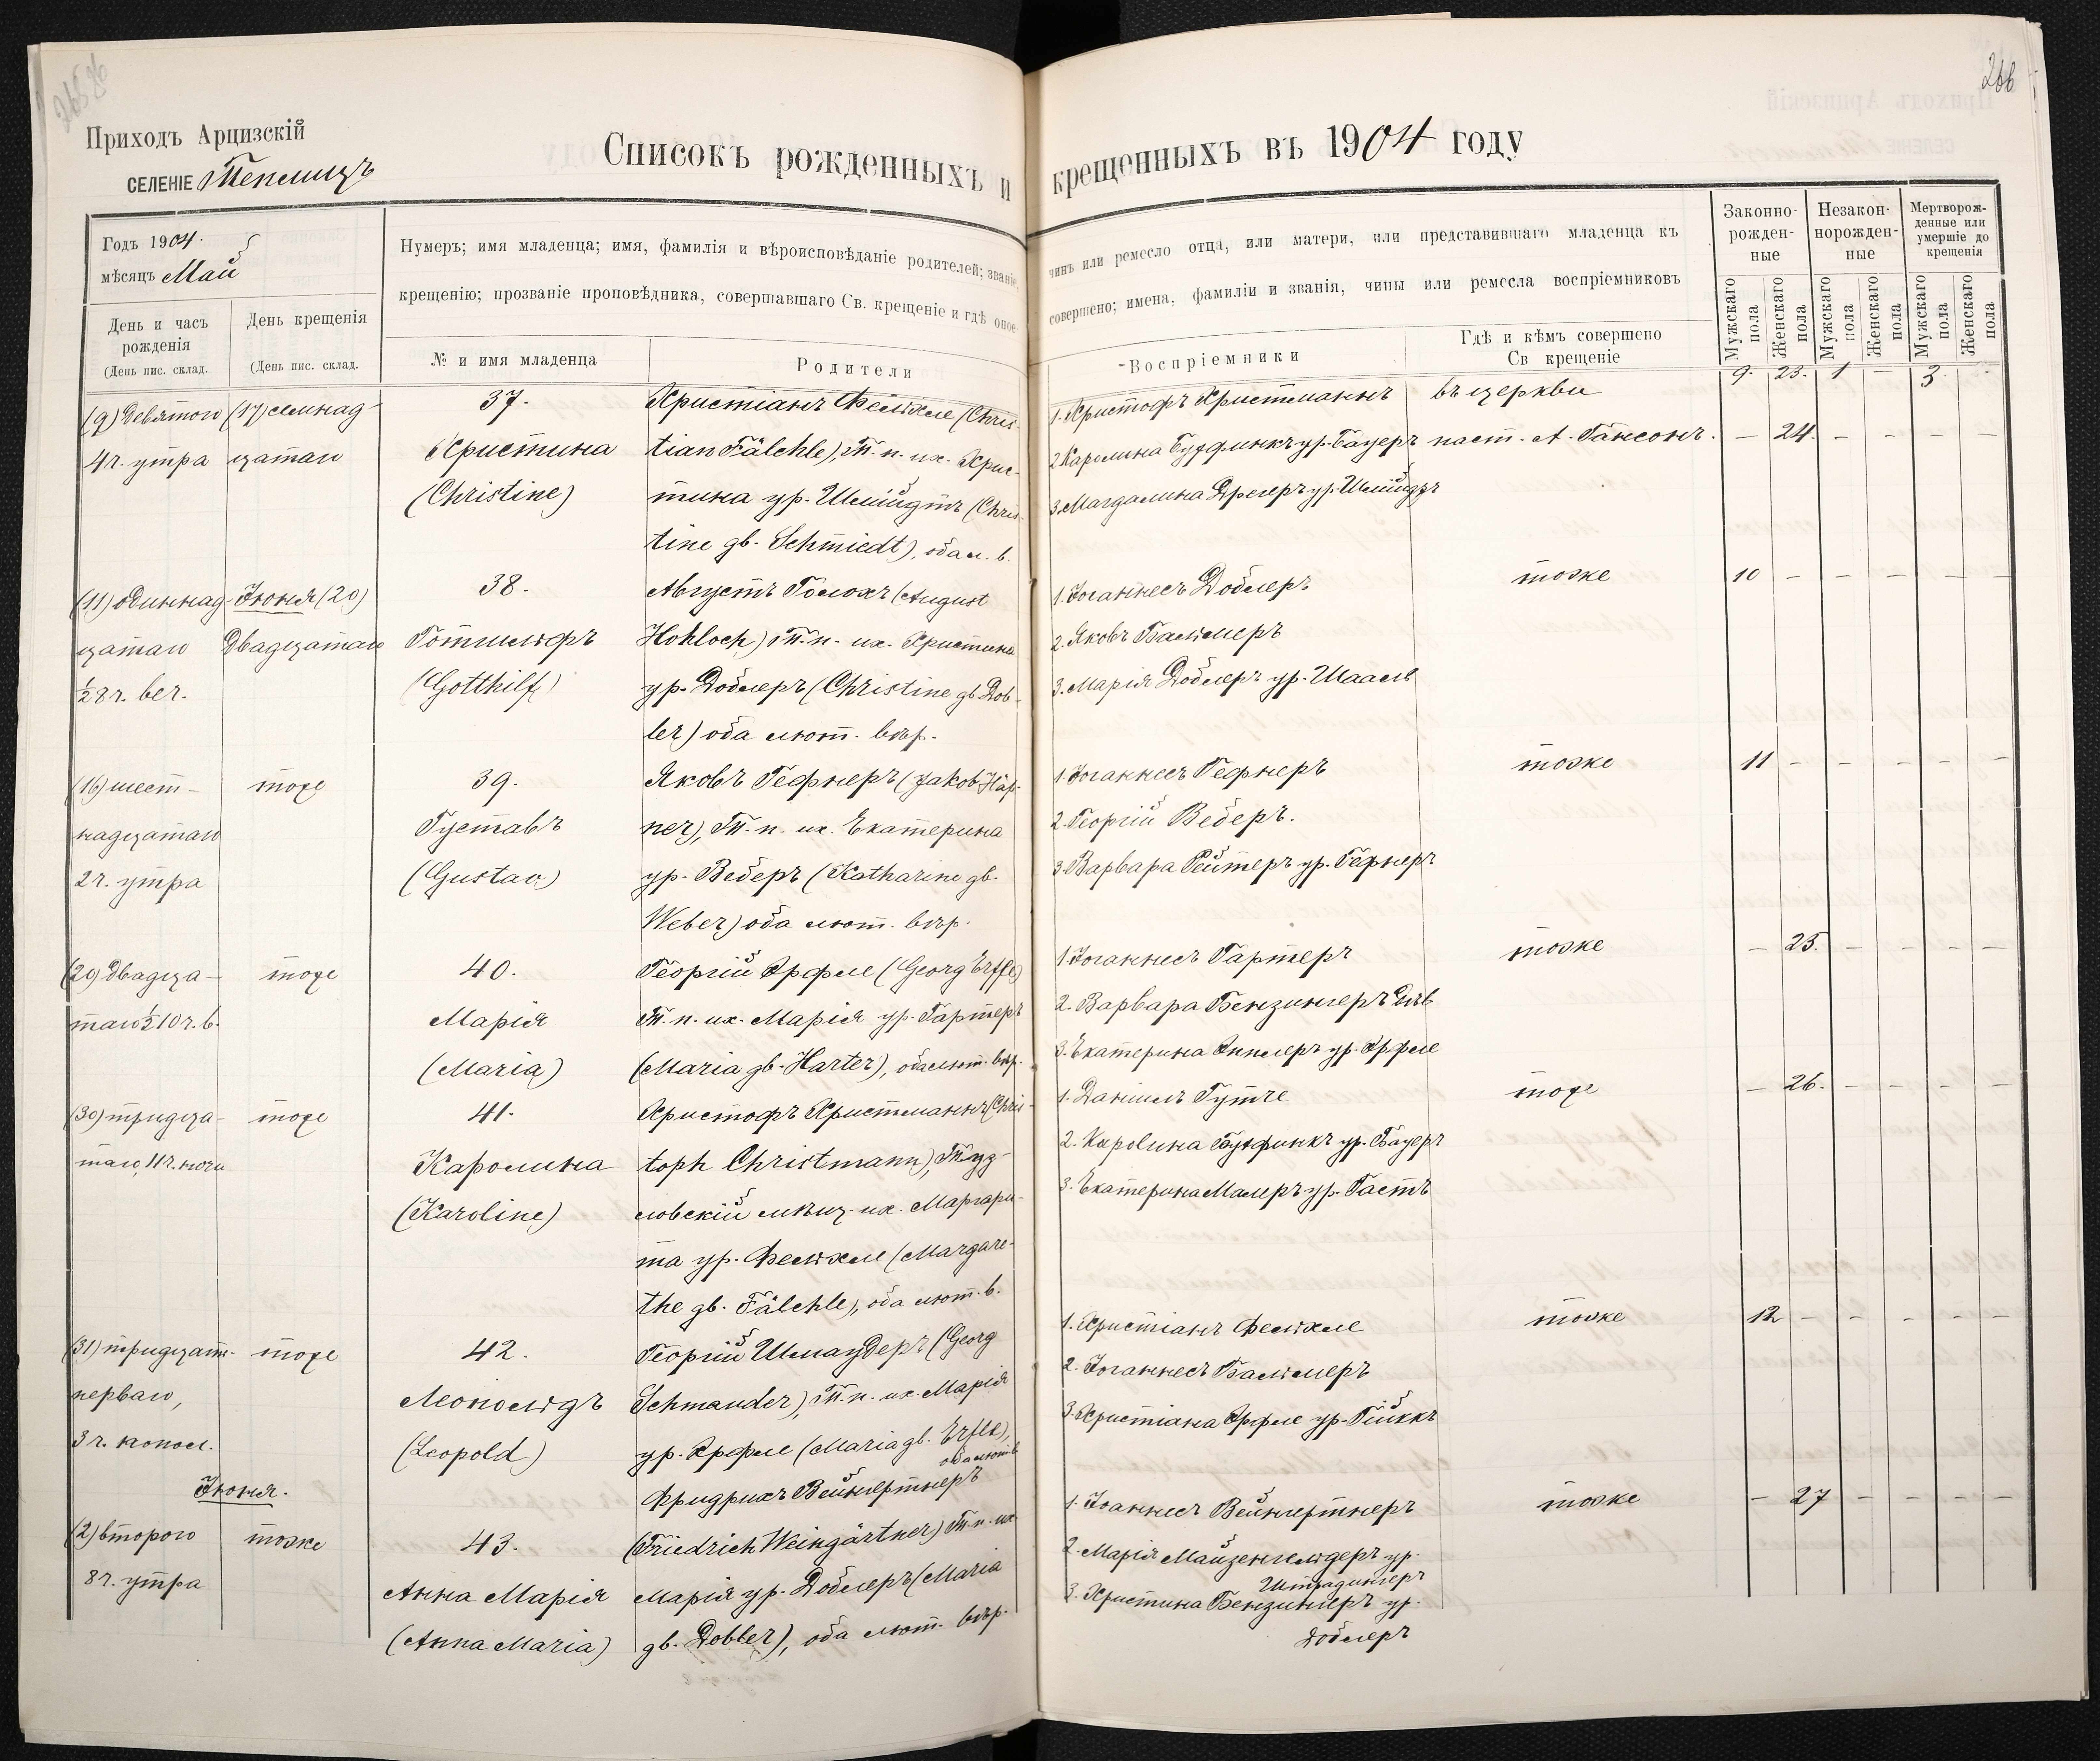 266
Приходъ Арцизскій
СЕЛЕНІЕ Теплицъ
Списокъ рожденныхъ и крещенныхъ въ 1904 году
Годъ 1904.
мѣсяцъ Май
Нумеръ; имя младенца; имя, фамилія и вѣроисповѣданіе родителей; званіе, чинъ или ремесло отца, или матери, или представившаго младенца къ
крещенію; прозваніе проповѣдника, совершавшаго Св. крещеніе и гдѣ оное совершено; имена, фамиліи и званія, чины или ремесла воспріемниковъ
Законно-
рожден-
ные
Незакон-
норожден-
ные
Мертворож-
денные или
умершіе до
крещенія
День и часъ
рожденія
(День пис. склад.
День крещенія
(День пис. склад.
№ и имя младенца
Родители
Воспріемники
Гдѣ и кѣмъ совершено
Св крещеніе
Мужскаго пола
Женскаго пола
Мужскаго пола
Женскаго пола
Мужскаго пола
Женскаго пола
9. 23. 1 — 3 -
(9) девятаго
4 ч. утра
(17) семнад-
цатаго
37.
Христина
(Christine)
Христіанъ Фельхле (Chris-
tian Fälchle), Т. п. их. Хрис-
тина ур. Шмидтъ (Chris-
tine gb. Schmiedt), оба л. в.
1. Христофъ Христманнъ
2. Каролина Бухфинкъ ур. Бауеръ
3. Магдалина Дрегеръ ур. Шмидтъ
въ церкви
паст. А. Гансонъ.
— 24. - - - —
(11) одиннад-
цатаго
½8 ч. веч.
Іюня (20)
Двадцатаго
38.
Готтильфъ
(Gotthilf)
Августъ Голохъ (August
Hohloch) Т. п. их. Христина
ур. Доблеръ (Christine gb. Dob-
ler) оба лют. вѣр.
1. Іоаннесъ Доблеръ
2. Яковъ Балмеръ
3. Марія Доблеръ ур. Шааль
тоже
10 — — — — —
(16) шест-
надцатаго
2 ч. утра
тоже
39.
Густавъ
(Gustav)
Яковъ Гефнеръ (Jakob Häf-
ner), Т. п. их. Екатерина
ур. Веберъ (Katharine gb.
Weber) оба лют. вѣр.
1. Іоаннесъ Гефнеръ
2. Георгій Веберъ.
3. Варвара Рейтеръ ур. Гефнеръ
тоже
11 — — — — —
(20) двадца-
таго ½10 ч. в.
тоже
40.
Марія
(Maria)
Георгій Эрфле (Georg Erfle)
Т. п. их. Марія ур. Гартеръ
(Maria gb. Harter), оба лют. вѣр.
1. Іоаннесъ Гартеръ
2. Варвара Бензингеръ Дѣв
3. Екатерина Эпплеръ ур. Эрфле
тоже
— 25. — — — —
(30) тридца-
таго, 11 ч. ночи
тоже
41.
Каролина
(Karoline)
Христофъ Христманнъ (Chris-
toph Christmann), Туз-
ловскій мѣщ. их. Маргари-
та ур. Фельхле (Margare-
the gb. Fälchle), оба лют. в.
1. Даніилъ Гутче
2. Каролина Бухфинкъ ур. Бауеръ
3. Екатерина Малеръ ур. Гастъ
тоже
— 26. — — — —
(31) тридцать
перваго,
3 ч. попол
тоже
42.
Леопольдъ
(Leopold)
Георгій Шмаудеръ (Georg
Schmauder), Т. п. их. Марія
ур. Эрфле (Maria gb. Erfle),
оба лют. в.
1. Христіанъ Фельхле
2. Іоаннесъ Балмеръ
3. Христіана Эрфле ур. Гиккъ
тоже
12 — — — — —
Іюня.
(2) второго
8 ч. утра
тоже
43.
Анна Марія
(Anna Maria)
Фридрихъ Вейнгертнеръ
(Friedrich Weingärtner) Т. п. их.
Марія ур. Доблеръ (Maria
gb. Dobler), оба лют. вѣр.
1. Іоаннесъ Вейнгертнеръ
2. Марія Майзенгельдеръ ур.
Штрадингеръ
3. Христина Бензингеръ ур.
Доблеръ
тоже
— 27 — — — —